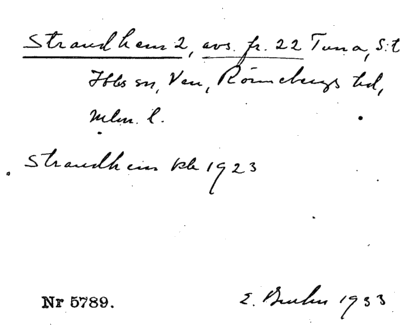 Strandhem 2, avs. fr. 22 Tuna, S:t
Ibbs sn, Ven, Rönnebergs hd,
Mlm. l.
Strandhem kb 1923
Nr 5789.
E. 1933